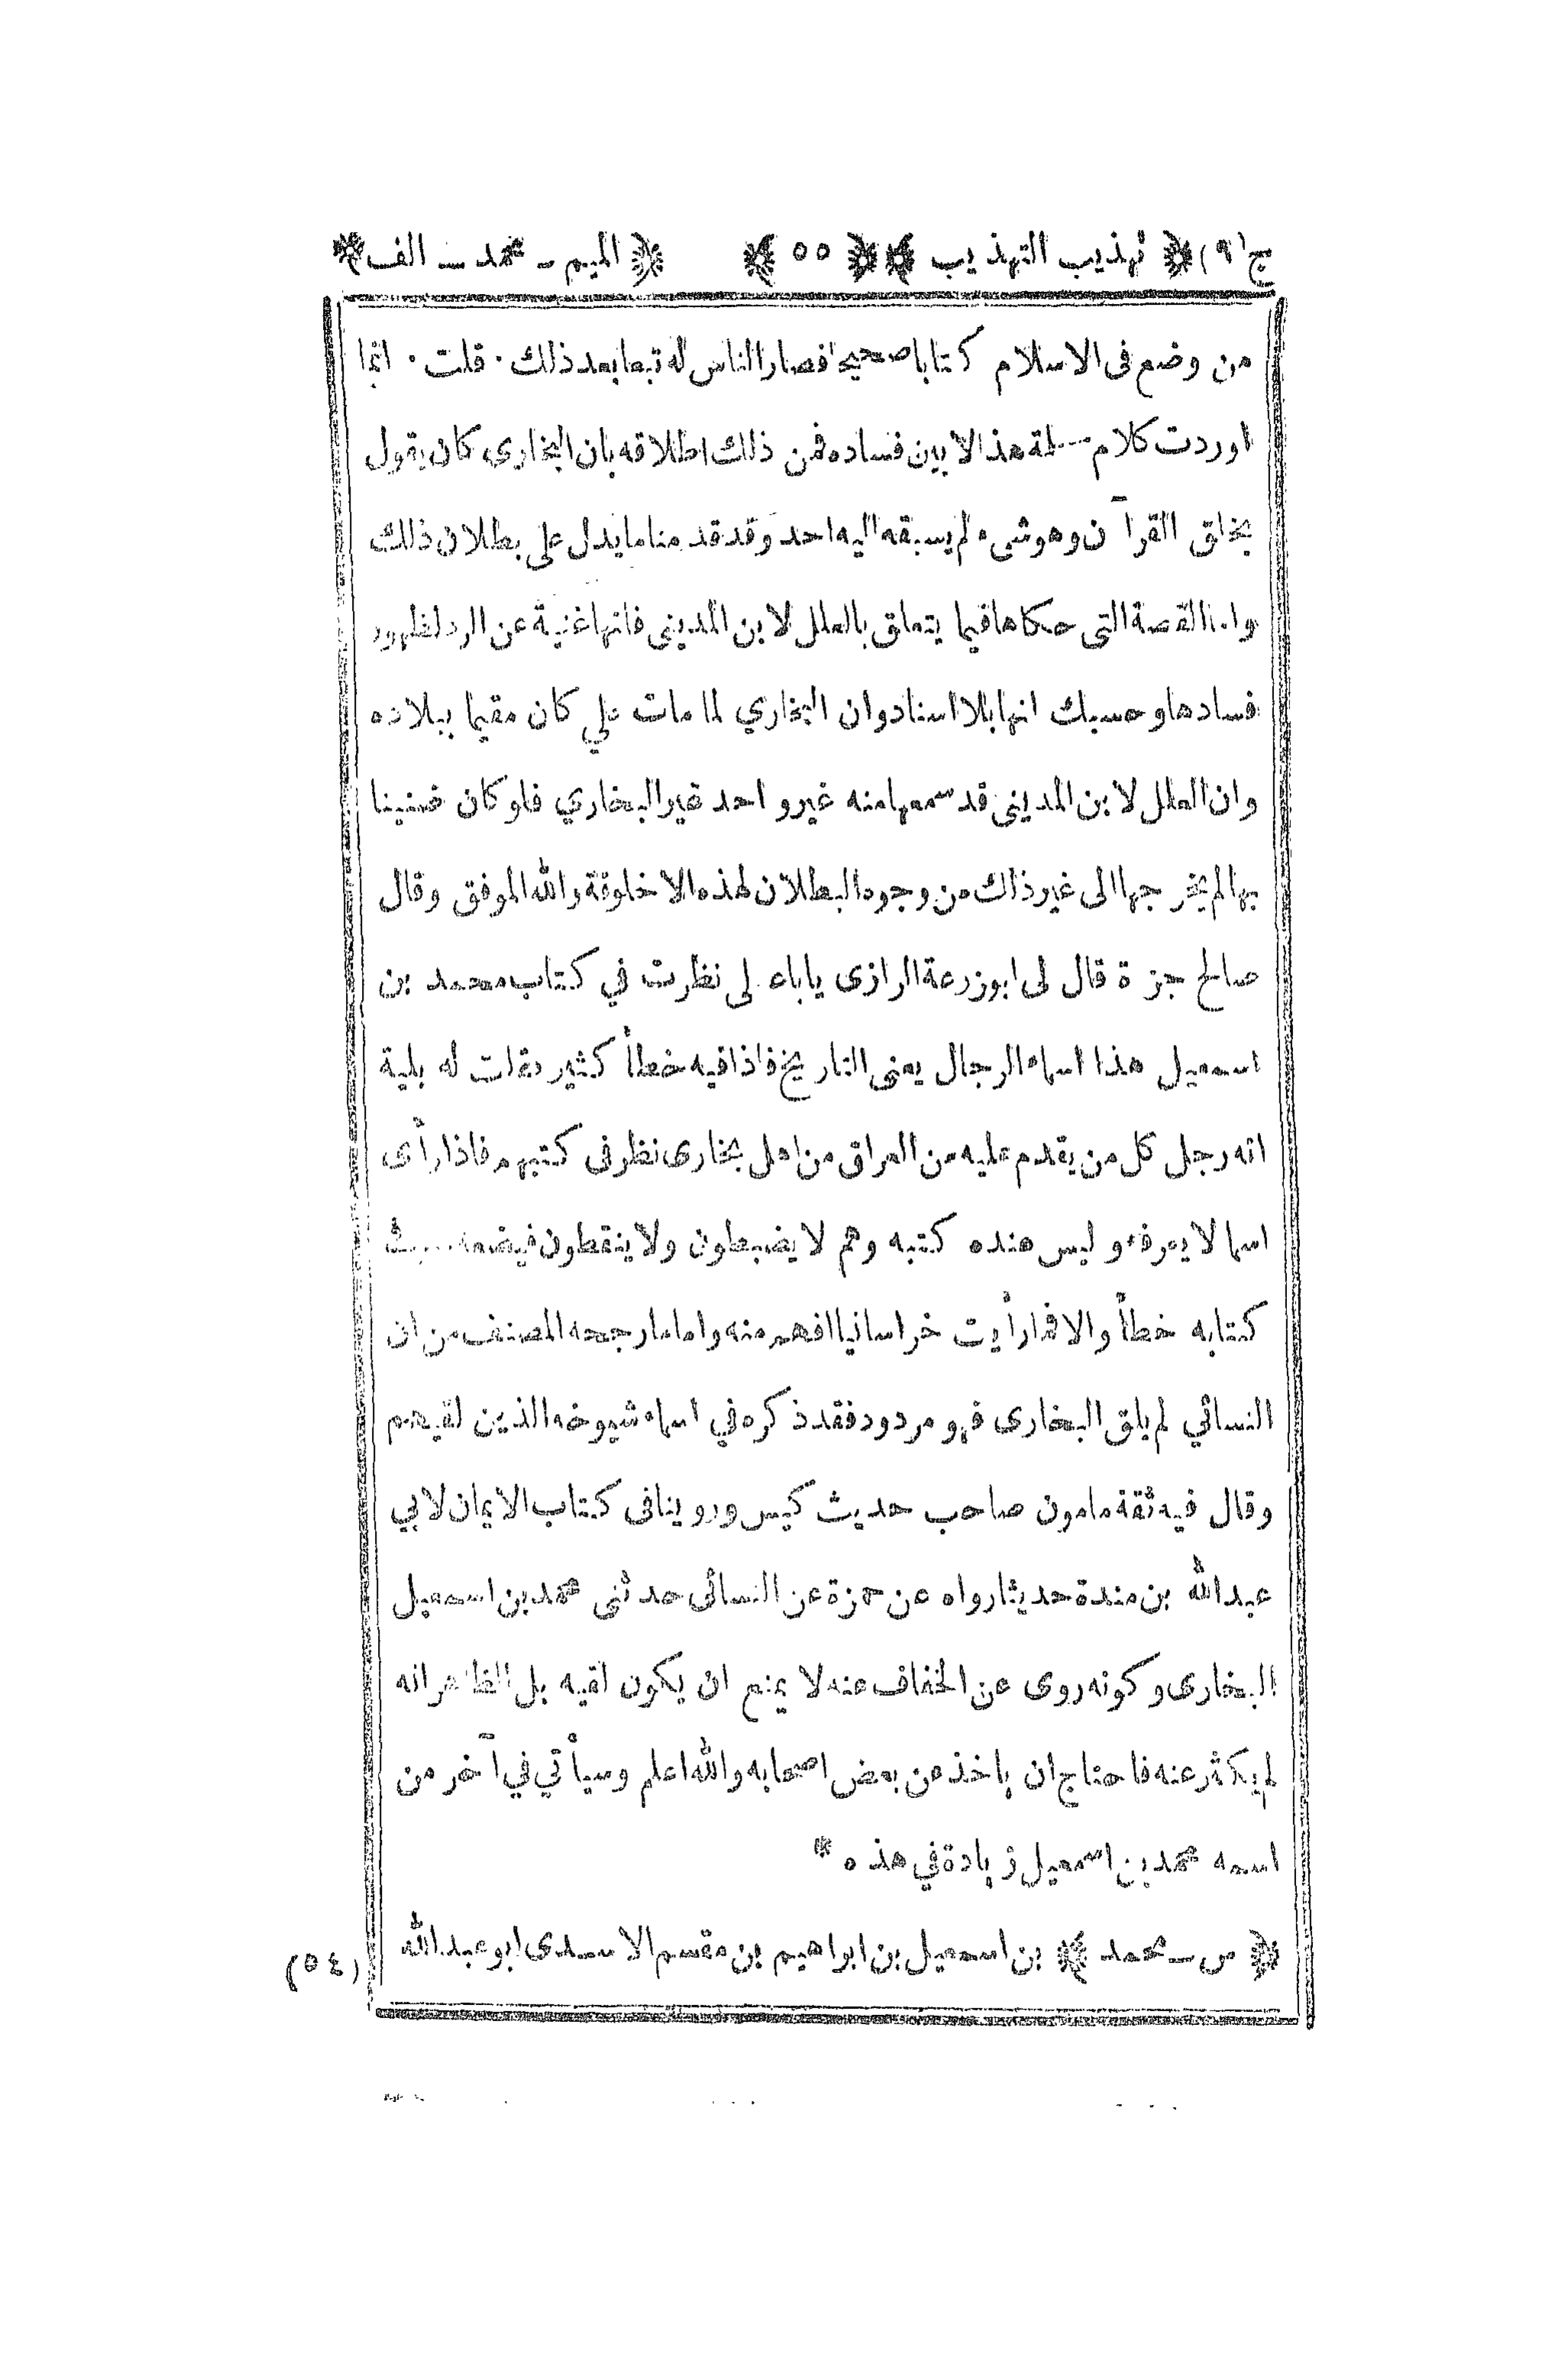 ج (٩) ﴿ تهذيب التهذيب ﴾ ﴿ ٥٥ ﴾ ﴿ الميم ـ محمد ـ الف ﴾
من وضع فى الاسلام كتابا صحيحا فصار الناس له تبعا بعد ذلك · قلت · انما
اوردت كلام مسلمة هذا الابين فساده فمن ذلك اطلاقه بان البخارى كان يقول
بخلق القرآن وهو شىء لم يسبقه اليه احد وقد قدمنا ما يدل على بطلان ذلك
واما القصة التى حكاها فيما يتعلق بالعلل لابن المدينى فانها غنية عن الرد لظهور
فسادها وحسبك انها بلا اسناد وان البخاري لما مات علي كان مقيما ببلاده
وان العلل لابن المدينى قد سمعها منه غير واحد غير البخاري فلو كان ضنينا
بها لم يخرجها الى غير ذلك من وجوه البطلان لهذه الاخلوقة والله الموفق وقال
صالح جزرة قال لى ابو زرعة الرازى يابا على نظرت في كتاب محمد بن
اسمعيل هذا اسماء الرجال يعنى التاريخ فاذا فيه خطأ كثير فقلت له بلية
انه رجل كل من يقدم عليه من العراق من اهل بخارى نظر فى كتبهم فاذا رأى
اسما لا يعرفه و ليس عنده كتبه وهم لا يضبطون ولا ينقطون فيضعه
كتابه خطأ والا فما رأيت خراسانيا افهم منه واما ما رجحه المصنف من ان
النسائي لم يلق البخارى فهو مردود فقد ذكره في اسماء شيوخه الذين لقيهم
وقال فيه ثقة مامون صاحب حديث كيس وروينا فى كتاب الايمان لابي
عبدالله بن مندة حديثا رواه عن حمزة عن النسائى حدثنى محمد بن اسمعيل
البخارى و كونه روى عن الخفاف عنه لا يمنع ان يكون لقيه بل الظاهر انه
لم يكثر عنه فاحتاج ان ياخذ عن بعض اصحابه والله اعلم وسيأتي في آخر من
اسمه محمد بن اسمعيل زيادة في هذه *
﴿ س ـ محمد ﴾ بن اسمعيل بن ابراهيم بن مقسم الاسدى ابو عبدالله
(٥٤)